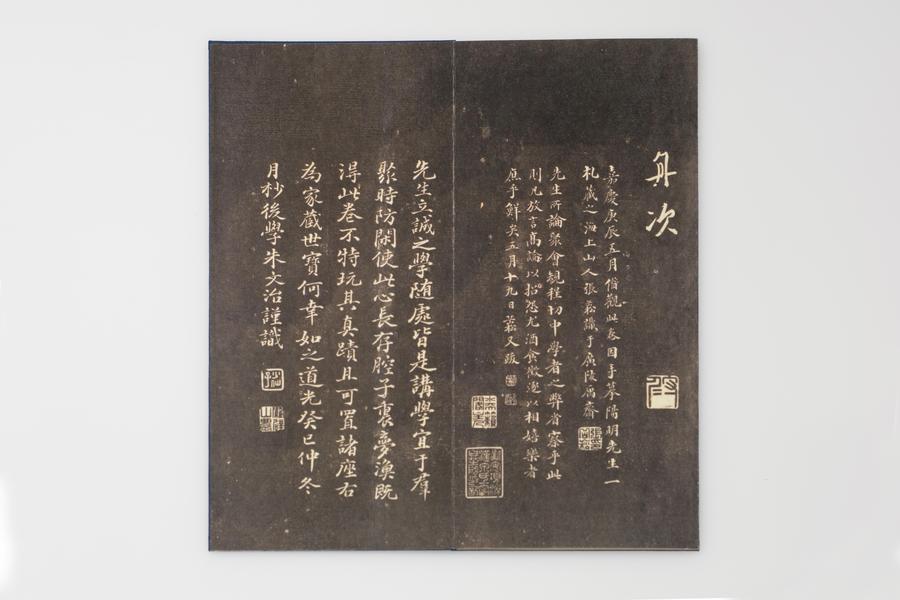 舟次
嘉慶庚辰五月借觀此卷因手摹陽明先生一
札藏之海上山人張崧識于廣陵寓齋
先生所論聚會規程切中學者之弊看察乎此
則凡放言高論以招愆尤酒食徵逐以相嬉樂者
庶乎鮮矣五月十九日崧又跋
先生立誠之學随處皆是講學宜于羣
聚時防閑使此心長存腔子裏夢渙既
得此卷不特玩其真蹟且可置諸座右
為家藏世寶何幸如之道光癸巳仲冬
月杪後學朱文治謹識